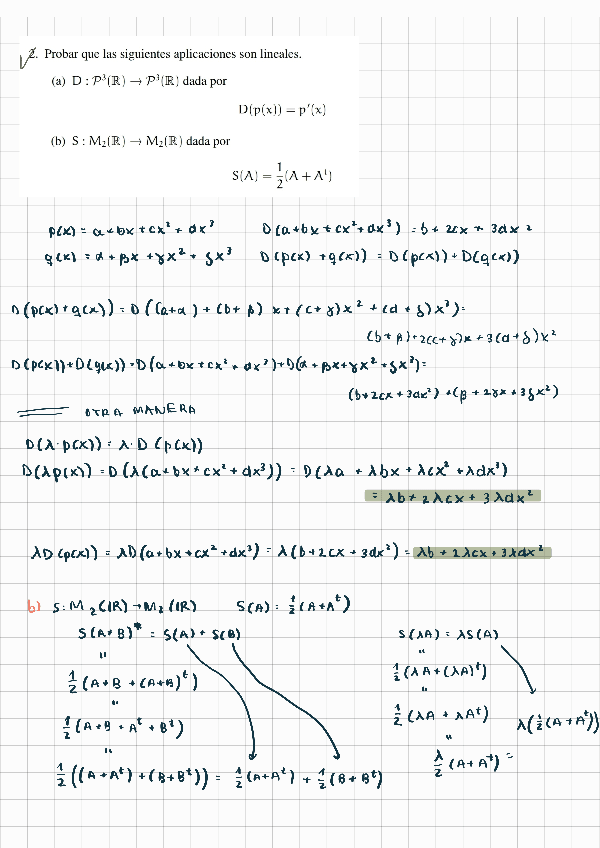 2. Probar que las siguientes aplicaciones son lineales.
(a) D : P³(ℝ) → P³(ℝ) dada por
D(p(x)) = p′(x)
(b) S : M₂(ℝ) → M₂(ℝ) dada por
S(A) = 1/2(A + Aᵗ)
p(x) = a+bx+cx²+dx³ D(a+bx+cx²+dx³) = b+2cx+3dx²
q(x) = α+βx+γx²+δx³ D(p(x)+q(x)) = D(p(x))+D(q(x))
D(p(x)+q(x)) = D((a+α)+(b+β)x+(c+γ)x²+(d+δ)x³) =
(b+β)+2(c+γ)x+3(d+δ)x²
D(p(x))+D(q(x)) = D(a+bx+cx²+dx³)+D(α+βx+γx²+δx³) =
(b+2cx+3dx²)+(β+2γx+3δx²)
OTRA MANERA
D(λ·p(x)) = λ·D(p(x))
D(λp(x)) = D(λ(a+bx+cx²+dx³)) = D(λa+λbx+λcx²+λdx³)
= λb+2λcx+3λdx²
λD(p(x)) = λD(a+bx+cx²+dx³) = λ(b+2cx+3dx²) = λb+2λcx+3λdx²
b) S: M₂(ℝ)→M₂(ℝ) S(A) = 1/2(A+Aᵗ)
S(A+B)* = S(A)+S(B) S(λA) = λS(A)
" "
1/2(A+B+(A+B)ᵗ) 1/2(λA+(λA)ᵗ)
" "
1/2(A+B+Aᵗ+Bᵗ) 1/2(λA+λAᵗ) λ(1/2(A+Aᵗ))
" "
1/2((A+Aᵗ)+(B+Bᵗ)) = 1/2(A+Aᵗ)+1/2(B+Bᵗ) λ/2(A+Aᵗ) =